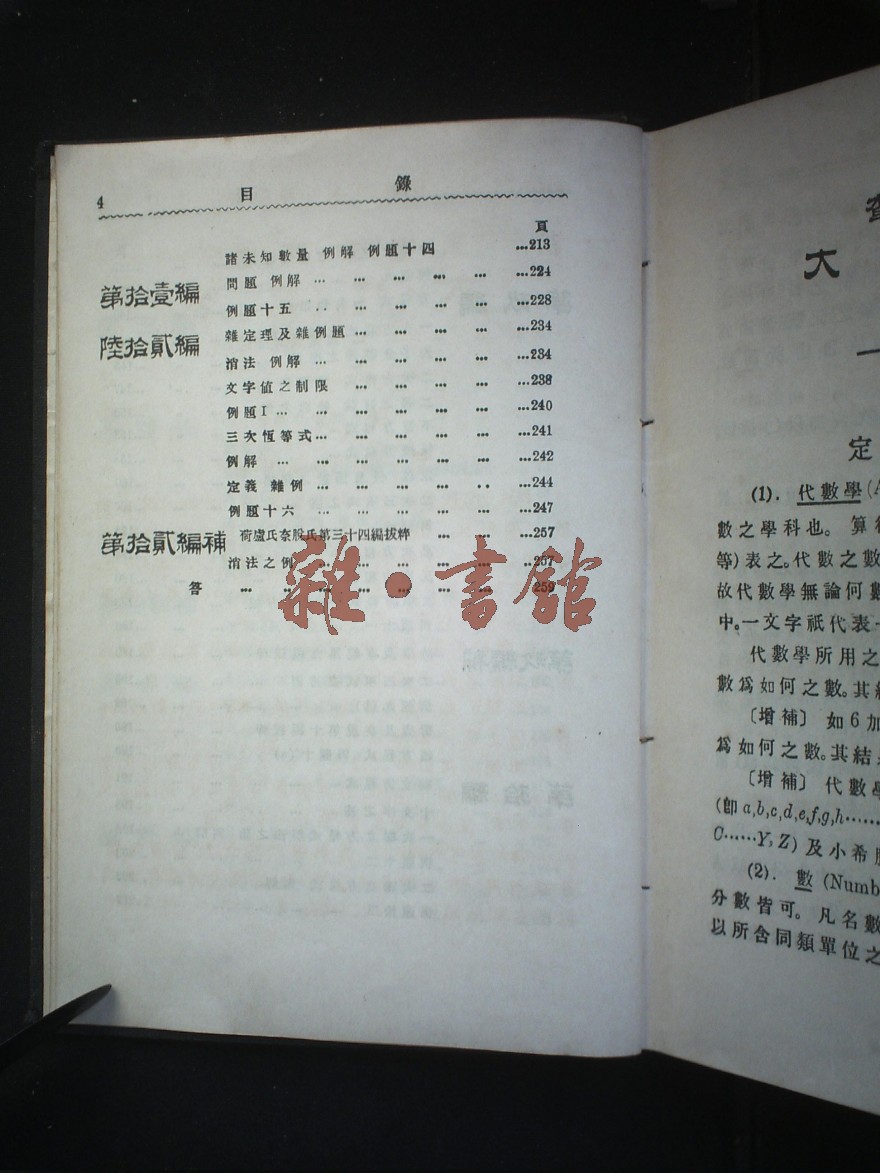 4 目 錄
頁
諸未知數量 例解 例題十四 ...213
第拾壹編 問題 例解 ... ... ... ... ... ...224
例題十五 .. ... ... ... ... ...228
陸拾貳編 雜定理及雜例題 ... ... ... ... ...234
消法 例解 ... ... ... ... ... ...234
文字值之制限 ... ... ... ... ...238
例題I ... ... ... ... ... ...240
三次恆等式... ... ... ... ... ...241
例解 ... ... ... ... ... ...242
定義 雜例 ... ... ... ... .. ...244
例題十六 ... ... ... ... ... ...247
第拾貳編補 荷盧氏奈股氏第三十四編拔粹 ... ... ...257
消法之例 ... ... ... ... ... ..257
答 ... .. ... ... ... ... ... 259
雜·書館
大
一
定
(1). 代數學(A
數之學科也。 算
等)表之。代數之數
故代數學無論何數
中。一文字祇代表
代數學所用之
數爲如何之數。其結
〔增補〕 如6加
爲如何之數。其結果
〔增補〕 代數學
(卽a,b,c,d,e,f,g,h……
C……Y,Z)及小希臘
(2). 數 (Numb
分數皆可。凡名數
以所含同類單位之